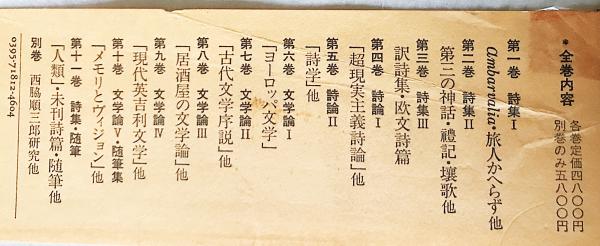 *全巻内容
各巻定価四八〇〇円
別巻のみ五八〇〇円
第一巻 詩集Ⅰ
Ambarvalia・旅人かへらず 他
第二巻 詩集Ⅱ
第三の神話・禮記・壤歌 他
第三巻 詩集Ⅲ
訳詩集・欧文詩篇
第四巻 詩論Ⅰ
「超現実主義詩論」他
第五巻 詩論Ⅱ
「詩学」他
第六巻 文学論Ⅰ
「ヨーロッパ文学」
第七巻 文学論Ⅱ
「古代文学序説」他
第八巻 文学論Ⅲ
「居酒屋の文学論」他
第九巻 文学論Ⅳ
「現代英吉利文学」他
第十巻 文学論Ⅴ・随筆集
「メモリとヴィジョン」他
第十一巻 詩集・随筆
「人類」・未刊詩篇・随筆他
別巻 西脇順三郎研究他
0395-71812-4604